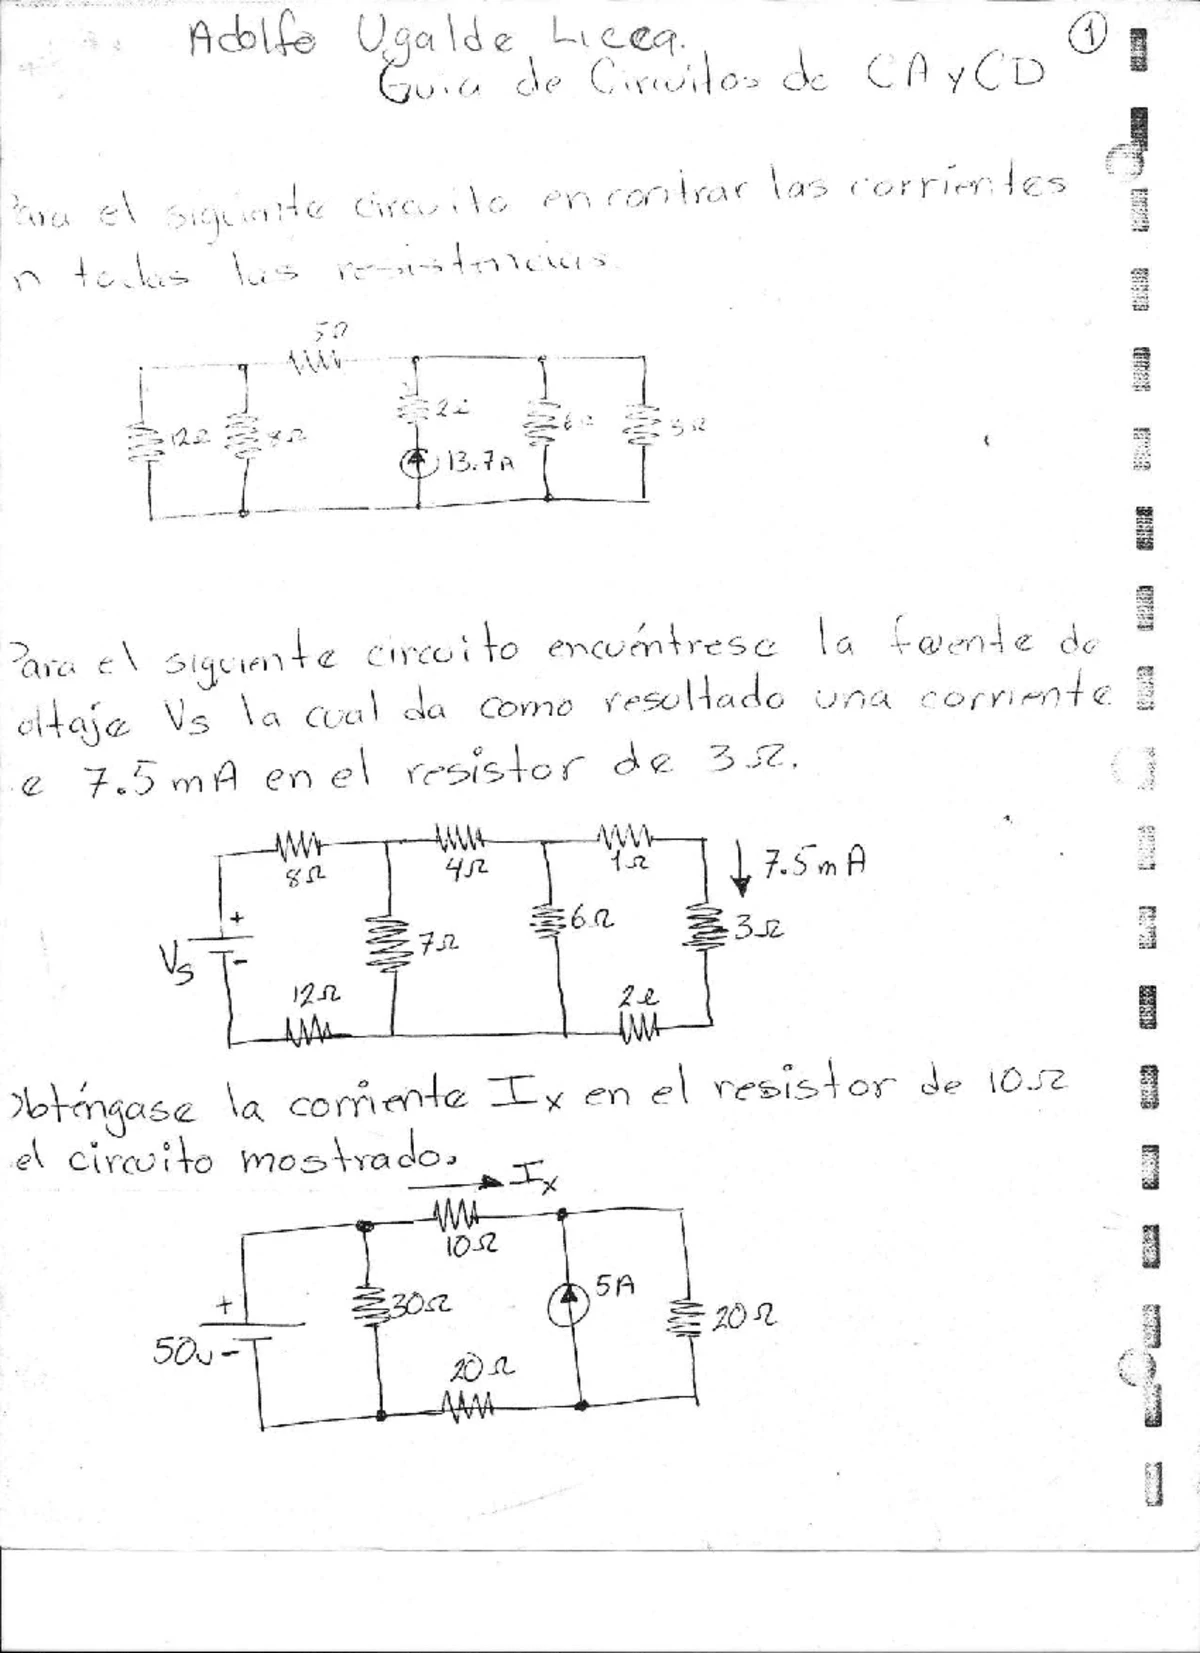 Adolfo Ugalde Liceq.
①
Guia de Circuitos de CA y CD
Para el siguiente circuito encontrar las corrientes
n todas las resistencias.
5Ω
12Ω 8Ω 2Ω 6Ω
13.7A
Para el siguiente circuito encuéntrese la fuente de
oltaje Vs la cual da como resultado una corriente
e 7.5 mA en el resistor de 3Ω.
8Ω 4Ω 1Ω 7.5 mA
+ 7Ω 6Ω 3Ω
Vs -
12Ω 2Ω
obténgase la corriente Ix en el resistor de 10Ω
el circuito mostrado.
Ix
10Ω
+ 30Ω 5A 20Ω
50v -
20Ω